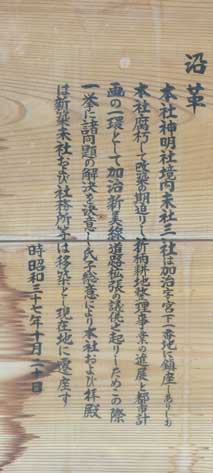 沿革
本社神明社境内末社三社は加治字宮下一番地に鎮座しありしも
本社腐朽して改築の期迫りし折柄耕地整理事業の進展と都市計
画の一環として加治新美線道路拡張の議俄に起りしためこの際
一挙に諸問題の解決を決意し氏子総意により本社および拝殿
は新築末社および社務所等は移築とし現在地に遷座す
時昭和三十七年十月二十日